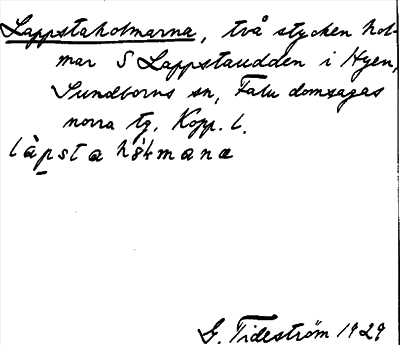 Lappstaholmarna, två stycken hol-
mar S Lappstaudden i Hyen,
Sundborns sn, Falu domsagas
norra tg. Kopp. l.
làpsta hólmana
G. Tideström 1929